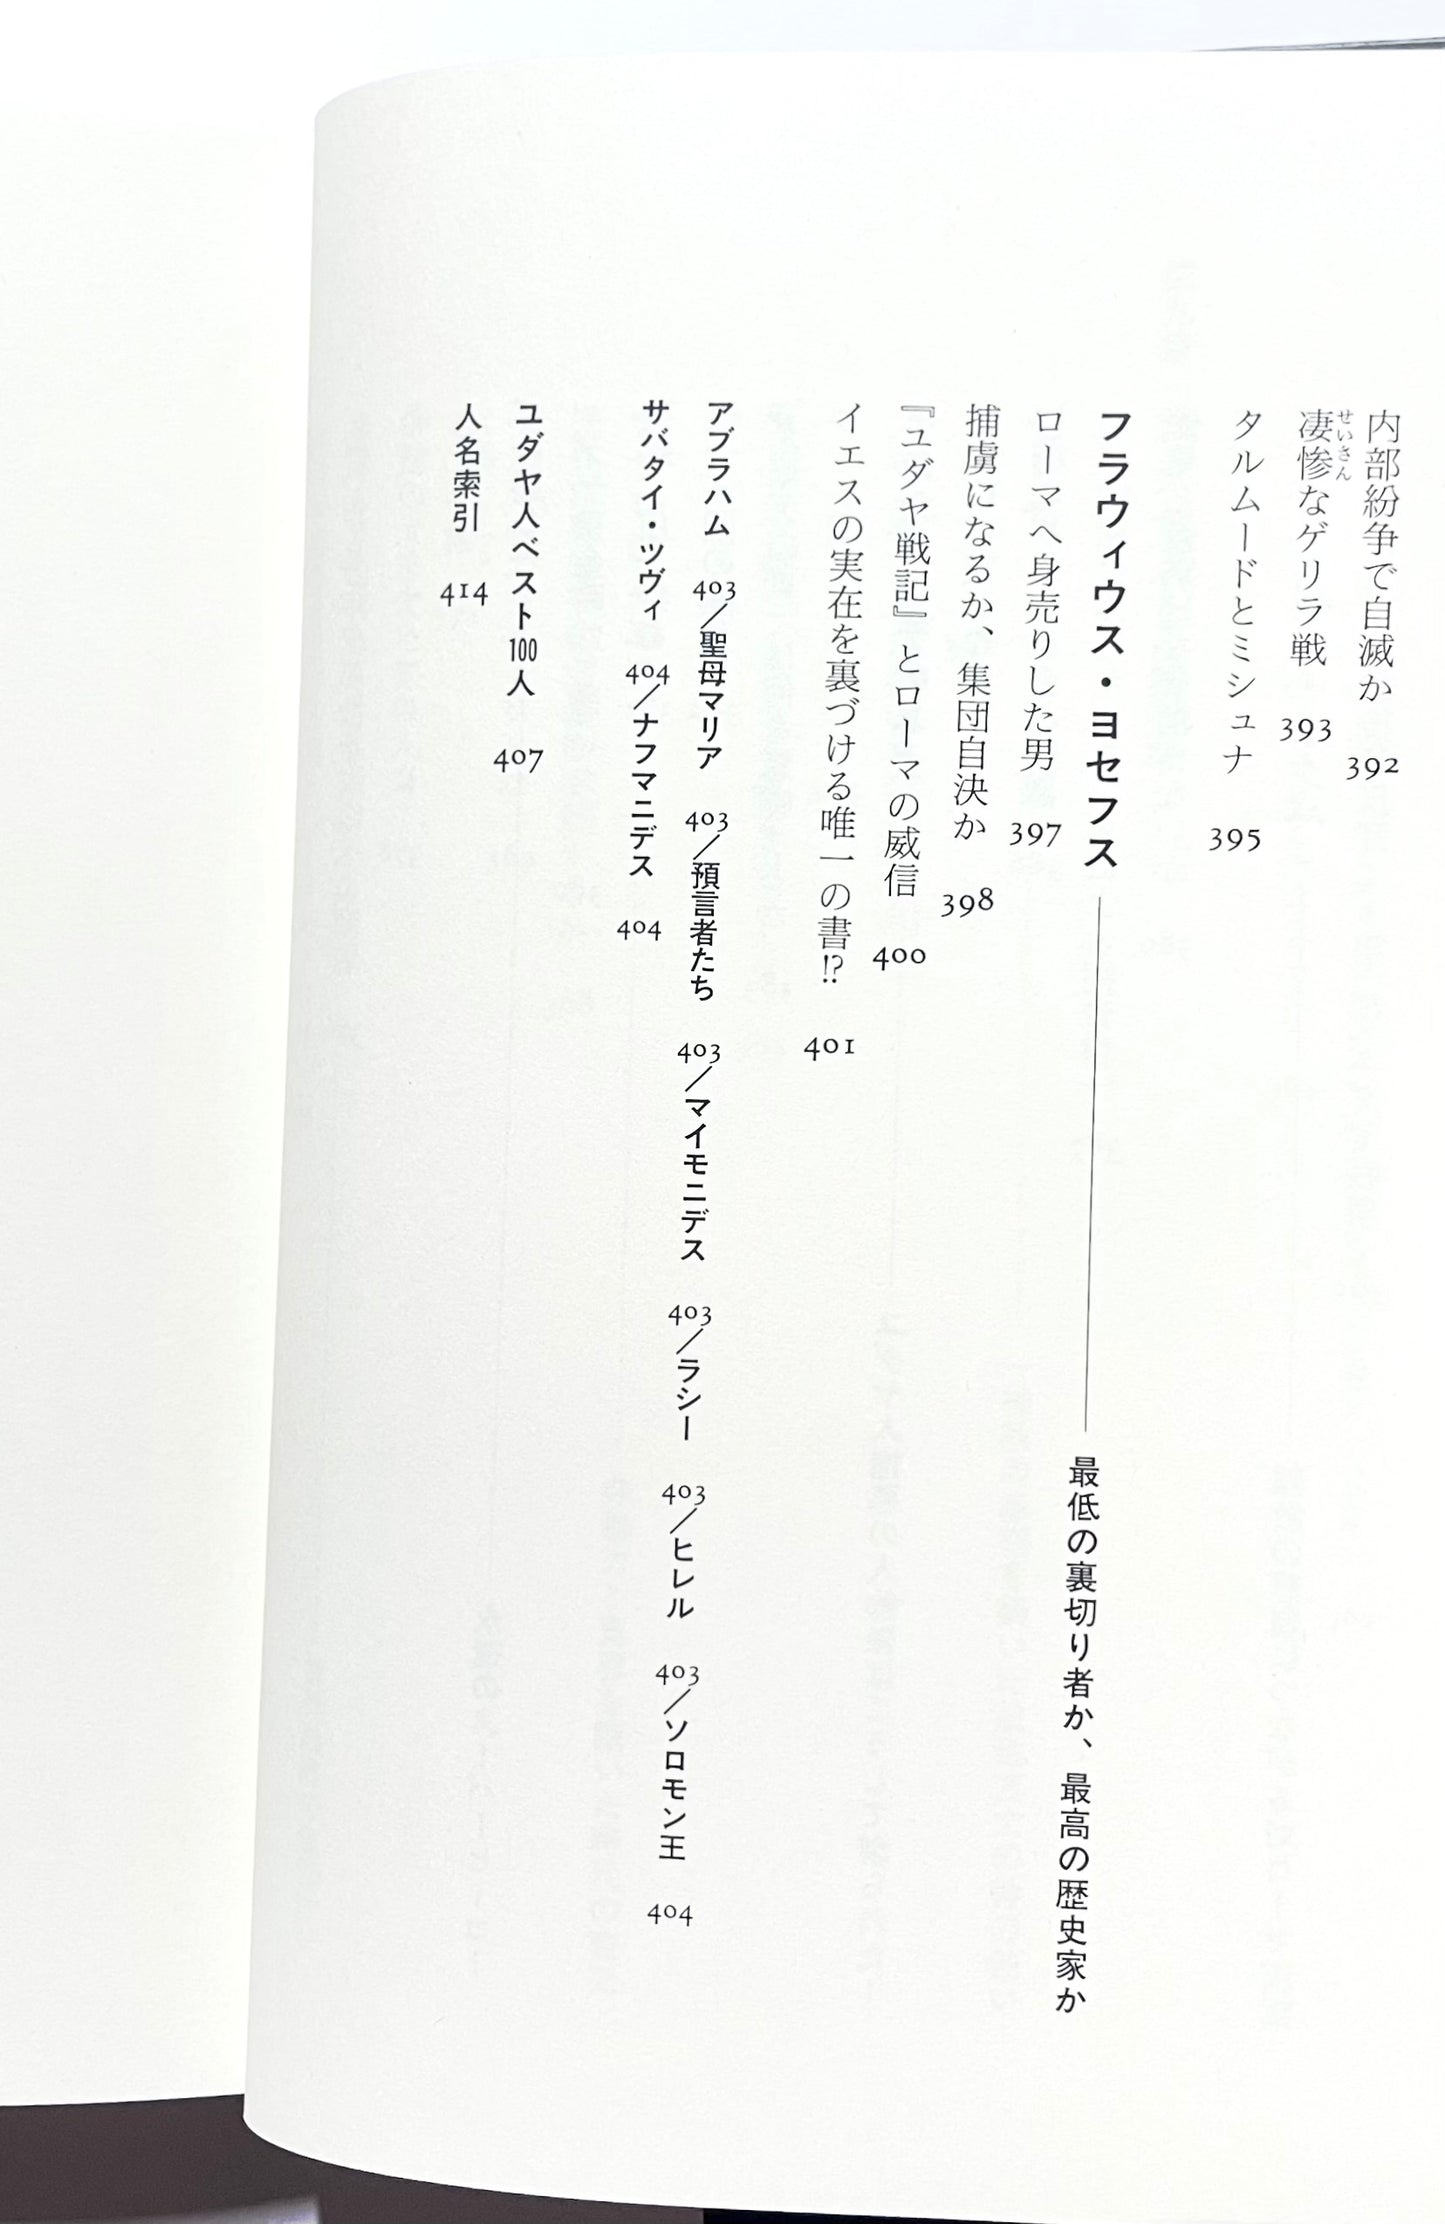 内部紛争で自滅か 392
凄惨なゲリラ戦 393
せいさん
タルムードとミシュナ 395
フラウィウス・ヨセフス――最低の裏切り者か、最高の歴史家か
ローマへ身売りした男 397
捕虜になるか、集団自決か 398
『ユダヤ戦記』とローマの威信 400
イエスの実在を裏づける唯一の書!? 401
アブラハム 403／聖母マリア 403／預言者たち 403／マイモニデス 403／ラシー 403／ヒレル 403／ソロモン王 404
サバタイ・ツヴィ 404／ナフマニデス 404
ユダヤ人ベスト100人 407
人名索引 414